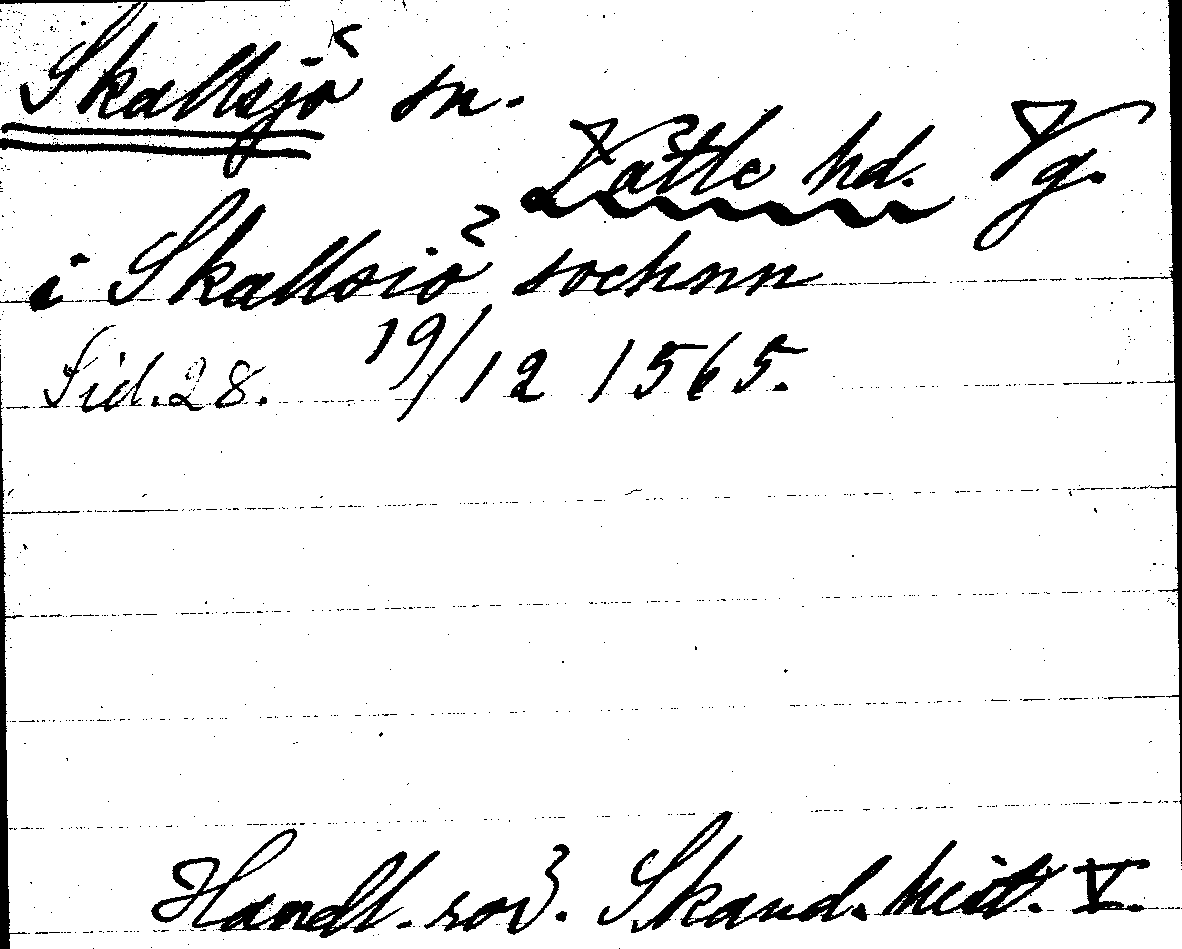 Skallsjö sn.
Vättle hd. Vg.
i Skallsiö sochnn
Sid. 28. 19/12 1565.
Handl. rör. Skand. hist. V.